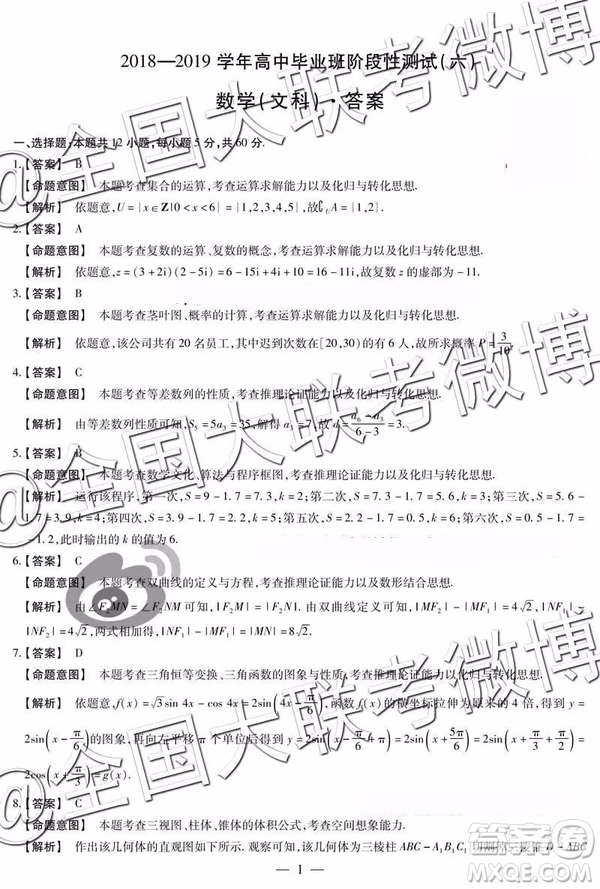 2018—2019 学年高中毕业班阶段性测试(六)
数学(文科)·答案
一、选择题:本题共 12 小题,每小题 5 分,共 60 分.
1.【答案】 B
【命题意图】 本题考查集合的运算,考查运算求解能力以及化归与转化思想.
【解析】 依题意,U={x∈Z|0<x<6}={1,2,3,4,5},故∁UA={1,2}.
2.【答案】 A
【命题意图】 本题考查复数的运算、复数的概念,考查运算求解能力以及化归与转化思想.
【解析】 依题意,z=(3+2i)(2-5i)=6-15i+4i+10=16-11i,故复数 z 的虚部为-11.
3.【答案】 B
【命题意图】 本题考查茎叶图、概率的计算,考查运算求解能力以及化归与转化思想.
【解析】 依题意,该公司共有 20 名员工,其中迟到次数在[20,30)的有 6 人,故所求概率 P=3/10.
4.【答案】 C
【命题意图】 本题考查等差数列的性质,考查推理论证能力以及化归与转化思想.
【解析】 由等差数列的性质可知,S5=5a3=35,解得 a3=7,故 d=(a6-a3)/(6-3)=3.
5.【答案】 B
【命题意图】 本题考查数学文化、算法与程序框图,考查推理论证能力以及化归与转化思想.
【解析】 运行该程序,第一次,S=9-1.7=7.3,k=2;第二次,S=7.3-1.7=5.6,k=3;第三次,S=5.6-
1.7=3.9,k=4;第四次,S=3.9-1.7=2.2,k=5;第五次,S=2.2-1.7=0.5,k=6;第六次,S=0.5-1.7=
-1.2,此时输出的 k 的值为 6.
6.【答案】 C
【命题意图】 本题考查双曲线的定义与方程,考查推理论证能力以及数形结合思想.
【解析】 由∠F2MN=∠F2NM 可知,|F2M|=|F2N|.由双曲线的定义可知,|MF2|-|MF1|=4√2,|NF1|-
|NF2|=4√2,两式相加得,|NF1|-|MF1|=|MN|=8√2.
7.【答案】 D
【命题意图】 本题考查三角恒等变换、三角函数的图象与性质,考查推理论证能力以及数形结合思想.
【解析】 依题意,f(x)=√3sin 4x-cos 4x=2sin(4x-π/6),将函数 f(x)的横坐标拉伸为原来的 4 倍,得到 y=
2sin(x-π/6)的图象,再向左平移 π 个单位后得到 y=2sin(x+π-π/6)=2sin(x+5π/6)=2sin(x+π/3+π/2)=
2cos(x+π/3)=g(x).
8.【答案】 C
【命题意图】 本题考查三视图、柱体、锥体的体积,考查空间想象能力.
【解析】 作出该几何体的直观图如下所示,该几何体为三棱柱 ABC-A1B1C1 切割掉三棱锥 D-ABC
— 1 —
@全国大联考微博
@全国大联考微博
@全国大联考微博
答案圈